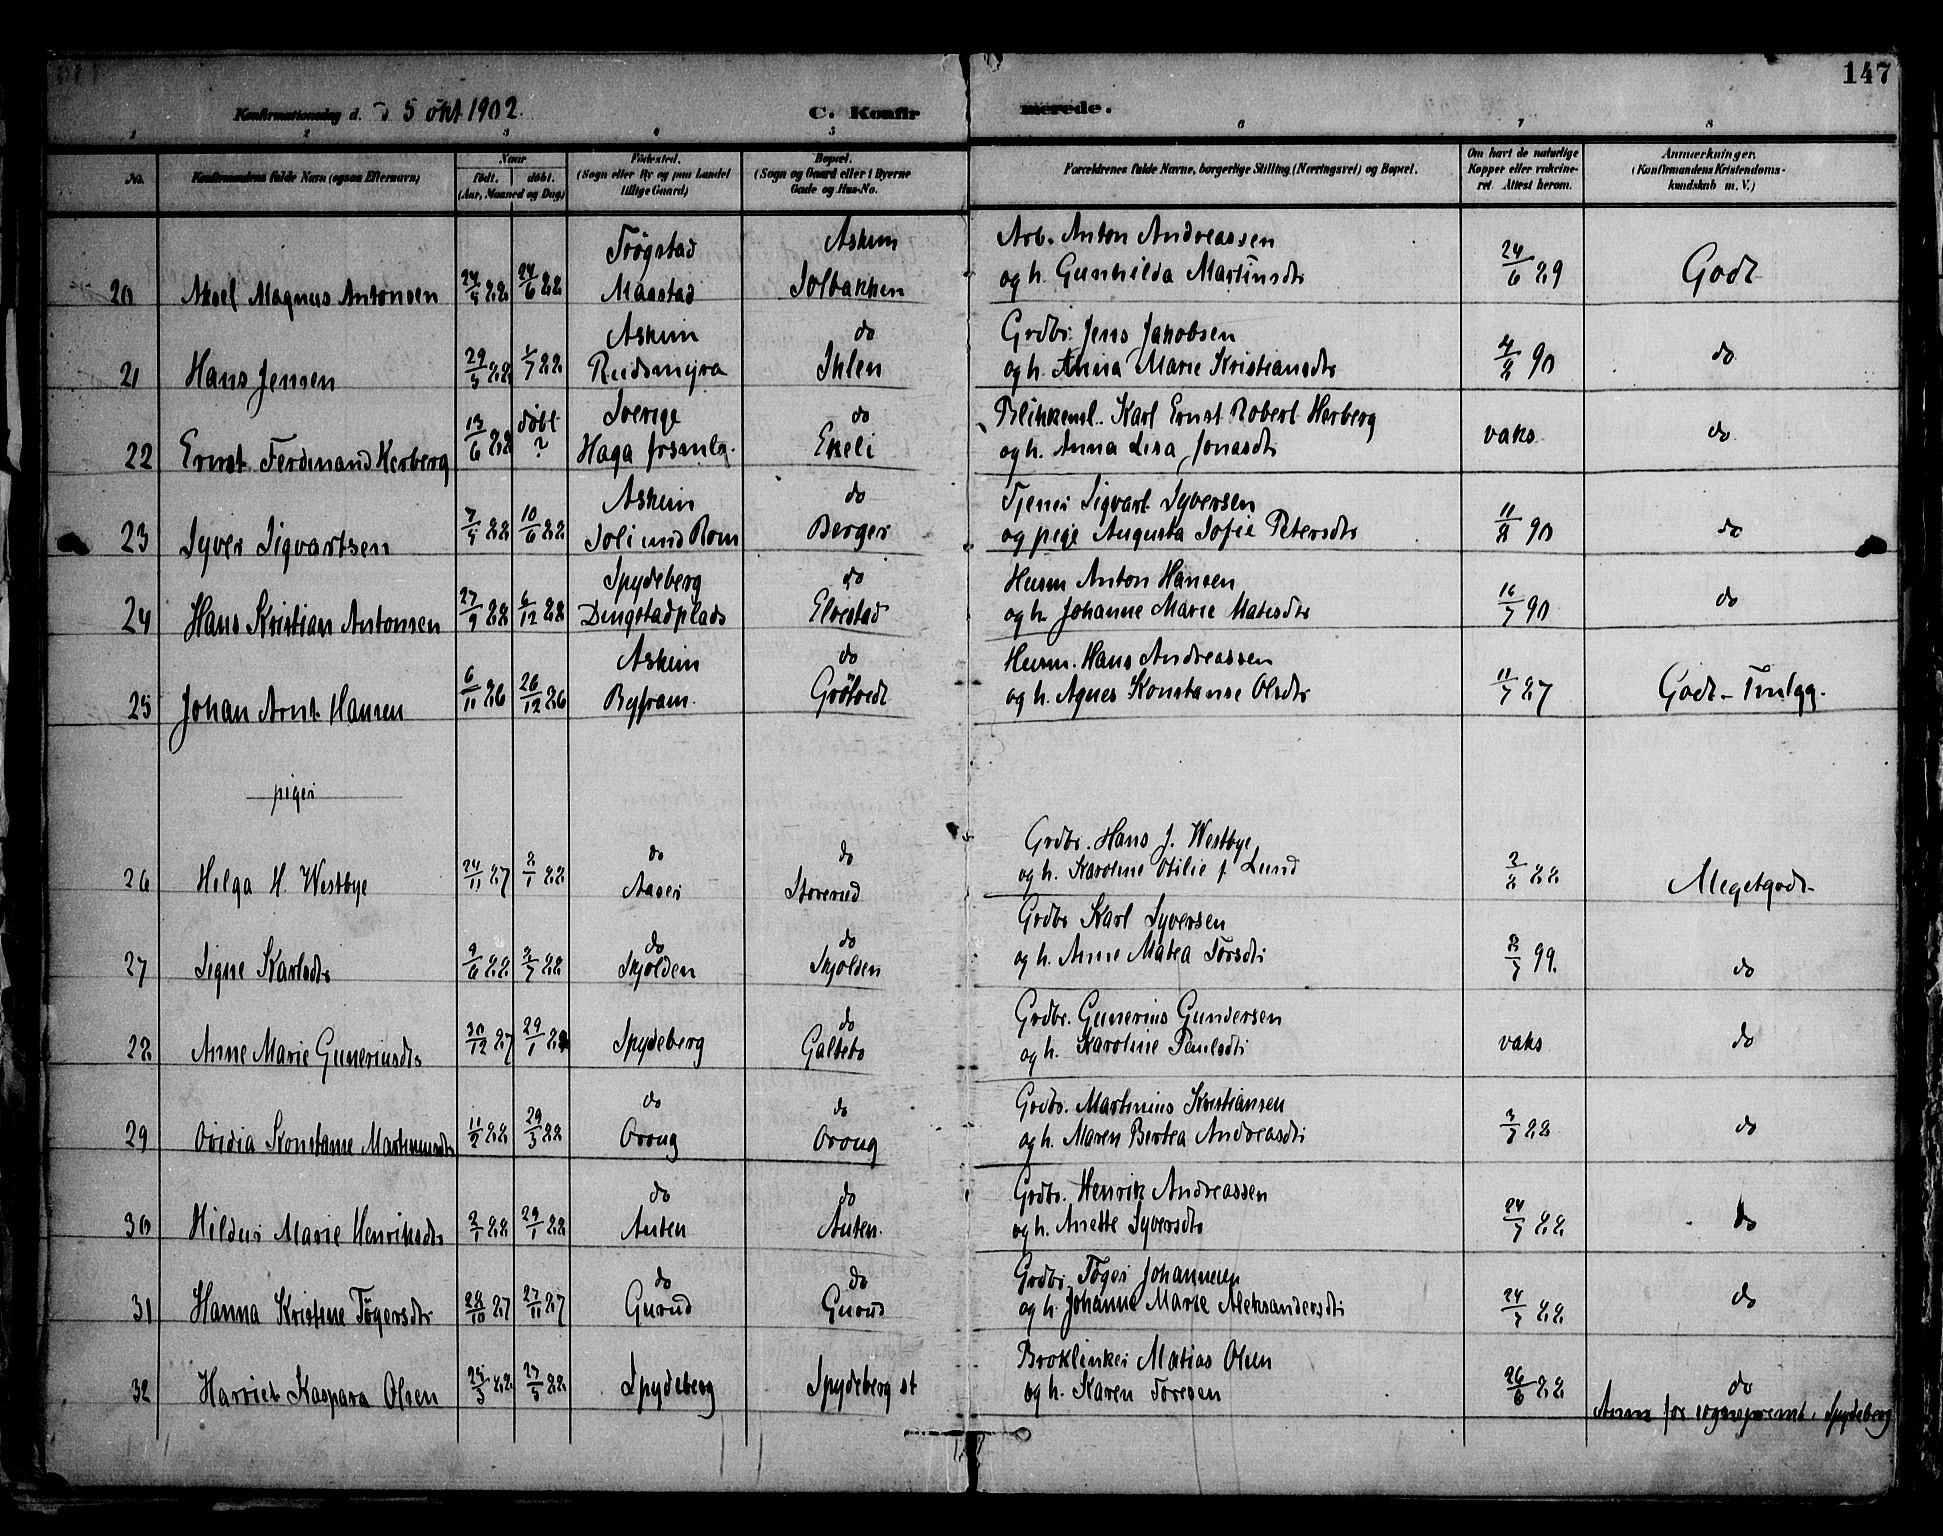 147
Konfirmationsdag d. 5 okt 1902.
C. Konfirmerede.
1 2 3 4 5 6 7 8
No.
Konfirmandens fulde Navn (ogsaa Efternavn)
Naar
født. døbt.
(Aar, Maaned og Dag)
Fødested.
(Sogn eller By og paa Landet
tillige Gaard)
Bopæl.
(Sogn og Gaard eller i Byerne
Gade og Hus-No.
Forældrenes fulde Navne, borgerlige Stilling (Næringsvei) og Bopæl.
Om havt de naturlige
Kopper eller vakcine-
ret. Attest herom.
Anmærkninger.
(Konfirmandens Kristendoms-
kundskab m. V.)
Trøgstad Askim Arb. Anton Andreassen
20 Aksel Magnus Antonsen 24/5 88 24/6 88 Maastad Solbakken og h. Gunhilda Martinsdtr 24/6 89 Godt
Askim do Grdbr. Jens Jakobsen
21 Hans Jensen 29/5 88 1/7 88 Rudsmyra Ihlen og h. Anna Marie Kristiansdtr 4/8 90 do
døbt Sverige do Blikkensl. Karl Ernst Robert Herberg
22 Ernst Ferdinand Herberg 13/6 88 ? Haga forsmlg. Ekeli og h. Anna Lisa Jonasdtr vaks do
Askim do Tjener Sigvart Syversen
23 Syver Sigvartsen 7/5 88 10/6 88 Soli und Rom Berger og pige Augusta Sofie Petersdtr 11/8 90 do
Spydeberg do Husm Anton Hansen
24 Hans Kristian Antonsen 27/9 88 6/12 88 Dingstadplads Elvestad og h. Johanne Marie Matisdtr 16/7 90 do
Askim do Husm. Hans Andreassen
25 Johan Arnt Hansen 6/11 86 26/12 86 Byfram. Grötvedt og h. Agnes Konstanse Olsdtr 11/7 87 Godt -
piger
do do Grdbr. Hans J. Westbye
26 Helga H. Westbye 24/11 87 8/1 88 Aaser Storerud og h. Karoline Otilie f Lund 2/8 88 Megetgodt-
do do Grdbr Karl Syversen
27 Signe Karlsdtr 9/6 88 8/7 88 Skjolden Skjolden og h. Anne Matea Torsdtr 8/7 99. do
do Grdbr. Gunerius Gundersen
28 Anne Marie Guneriusdtr 30/12 87 29/1 88 Spydeberg Galtebo og h. Karoline Paulsdtr vaks do
do do Grdbr. Martinius Kristiansen
29 Ovidia Konstanse Martinusdtr 11/2 88 29/3 88 Oroug Oroug og h. Maren Bertea Andreasdtr 3/7 88 do
do do Grdbr. Henrik Andreassen
30 Hildur Marie Henriksdtr 2/1 88 29/1 88 Auten Auten. og h. Anette Syversdtr 24/7 88 do
do do Grdbr. Töger Johannesen
31 Hanna Kristine Tögersdtr 28/10 87 27/11 87 Gurud Gurud og h. Johanne Marie Aleksandersdtr 24/7 88 do
Matias Olsen
32 Harriet Kaspara Olsen 25/3 88 27/5 88 Spydeberg Spydeberg st og h. Karen Toresen 26/6 88 do
Anm for sogneprest i Spydeberg